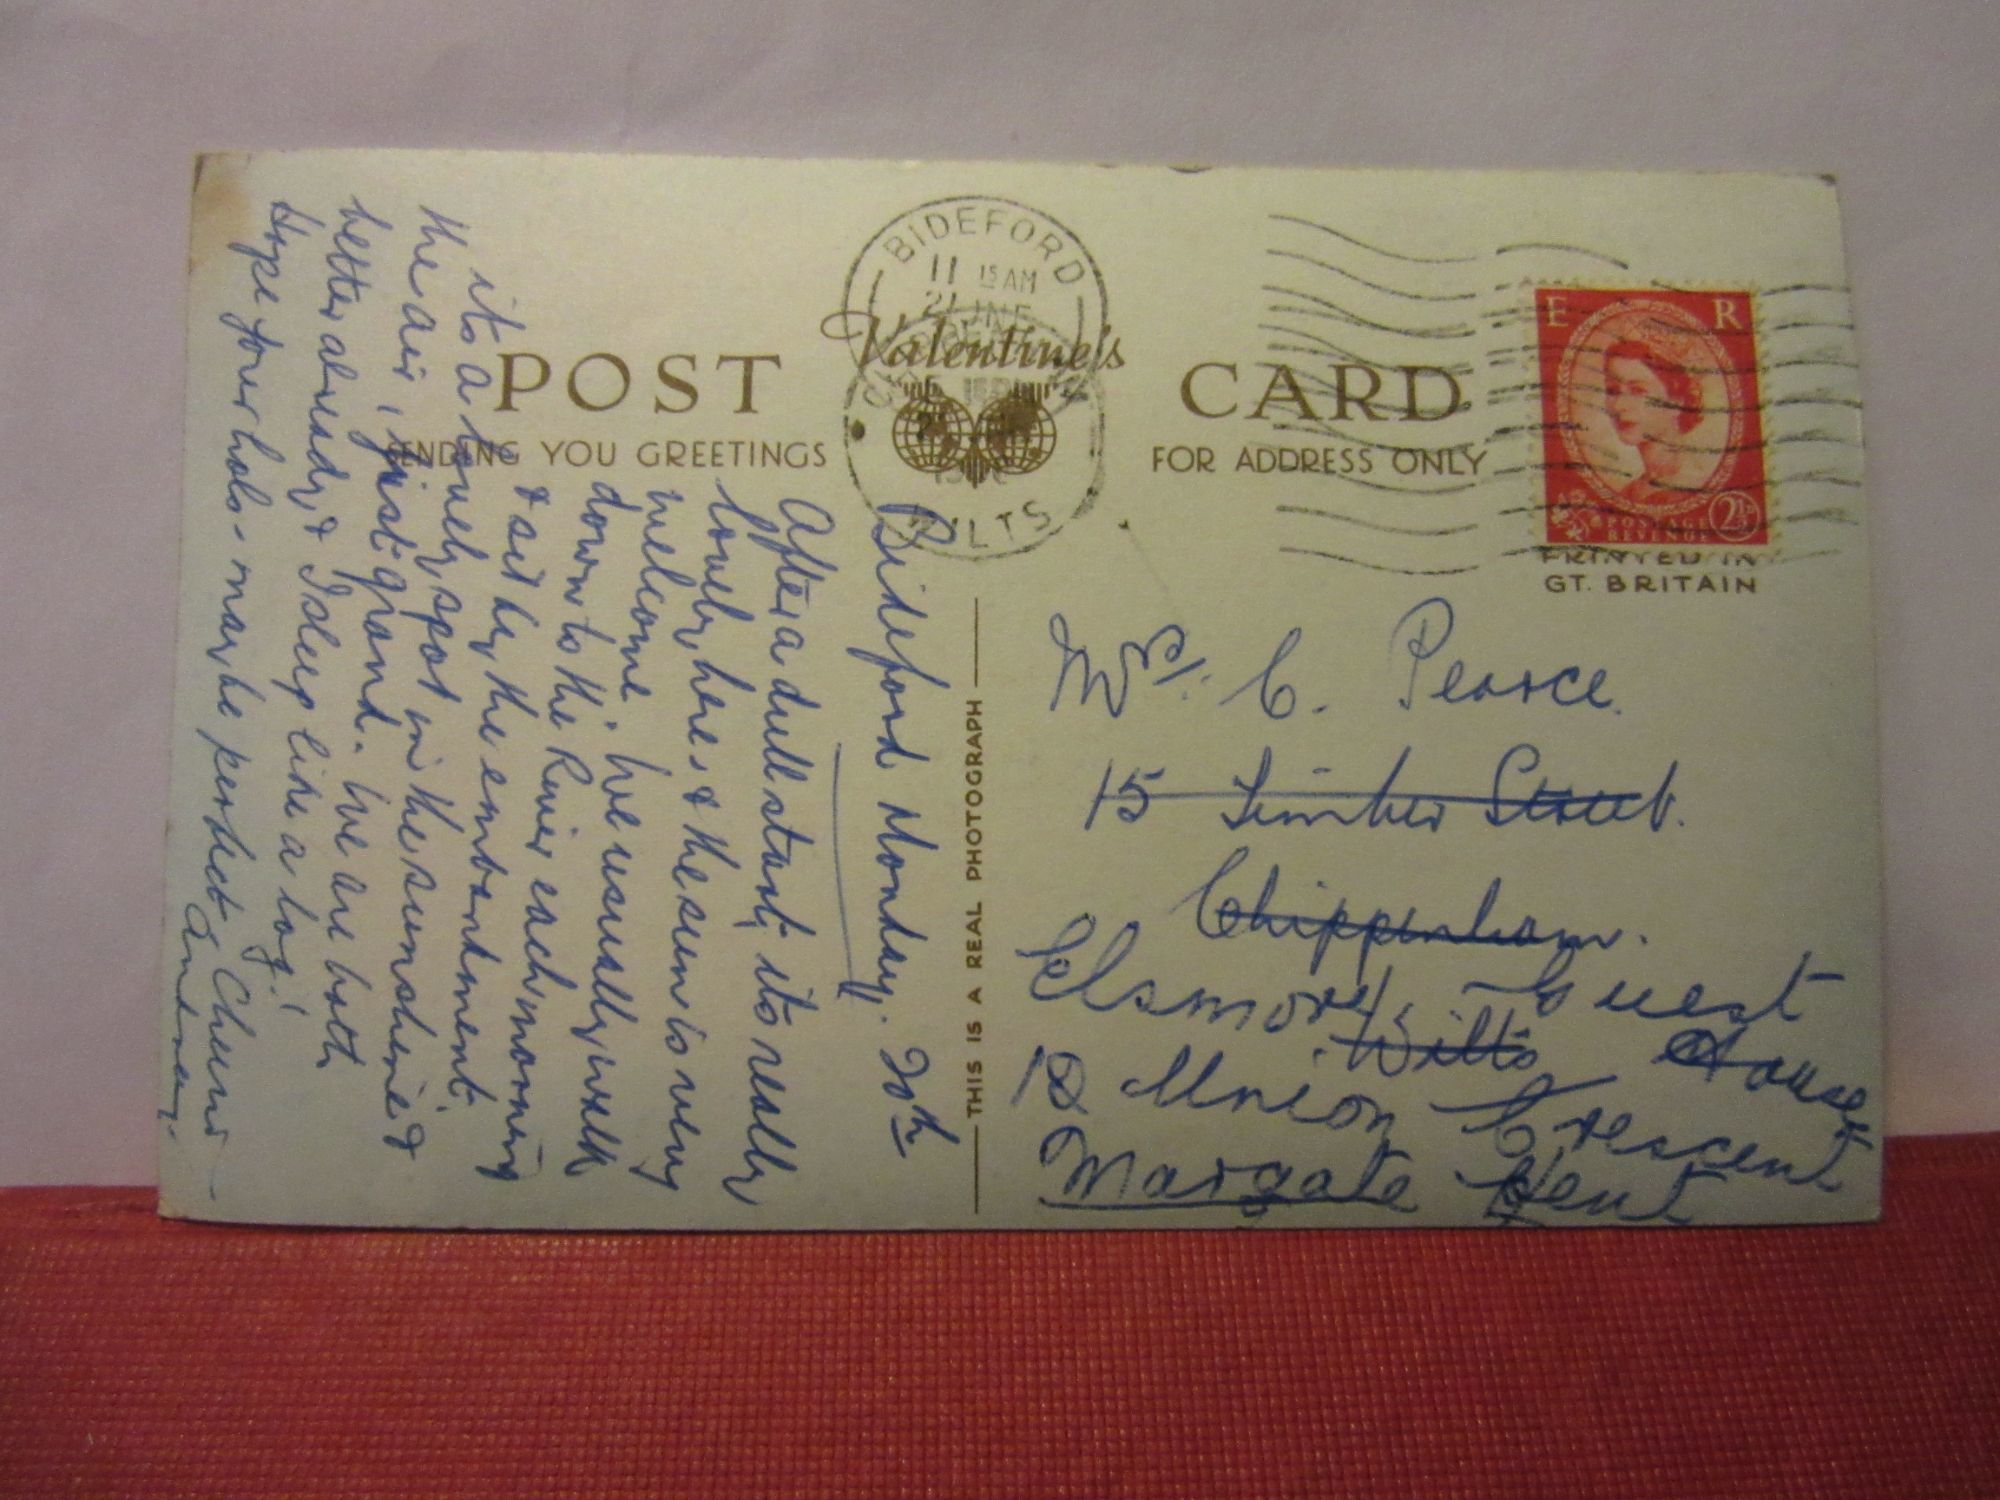 POST
CARD
SENDING YOU GREETINGS
FOR ADDRESS ONLY
Valentine's
BIDEFORD
11 15 AM
21 JNE
WILTS
E R
POSTAGE
REVENUE
2½D
PRINTED IN
GT. BRITAIN
THIS IS A REAL PHOTOGRAPH
Bideford Monday. 20th
After a dull start, its really
lovely here & the sun is very
welcome. We usually walk
down to the River each morning
& sit by the embankment.
its a lovely spot in the sunshine &
the air, just grand. We are both
better already & I sleep like a log!
Hope your hols - may be perfect Cheerio
C. Pearce.
15 Timber Street.
Chippenham.
Wilts
Elsmore Guest House
Union Crescent
Margate Kent